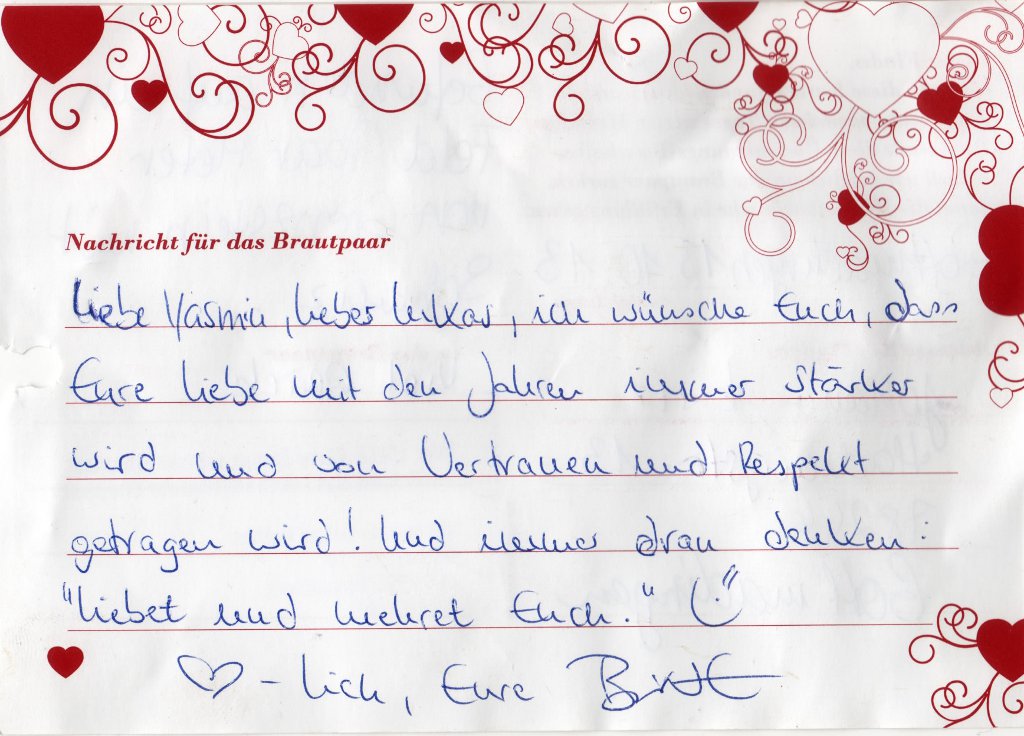 Nachricht für das Brautpaar
Liebe Yasmin, lieber Lukas, ich wünsche Euch, dass
Eure Liebe mit den Jahren immer stärker
wird und von Vertrauen und Respekt
getragen wird! Und immer dran denken:
"Liebet und mehret Euch."
♡-lich, Eure Birte